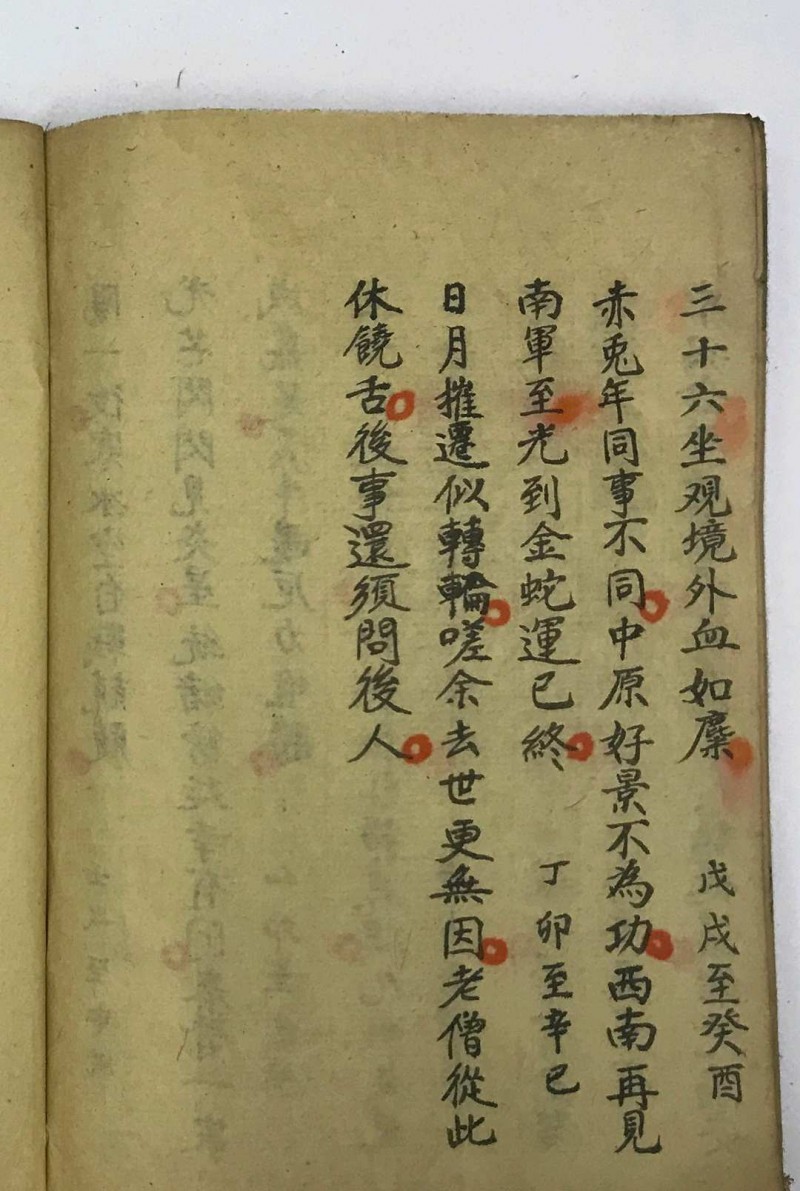 三十六坐观境外血如糜 戊戌至癸酉
赤兎年同事不同中原好景不為功西南再見
南軍至光到金蛇運已終 丁卯至辛巳
日月摧遷似轉輪嗟余去世更無因老僧從此
休饒舌後事還須問後人